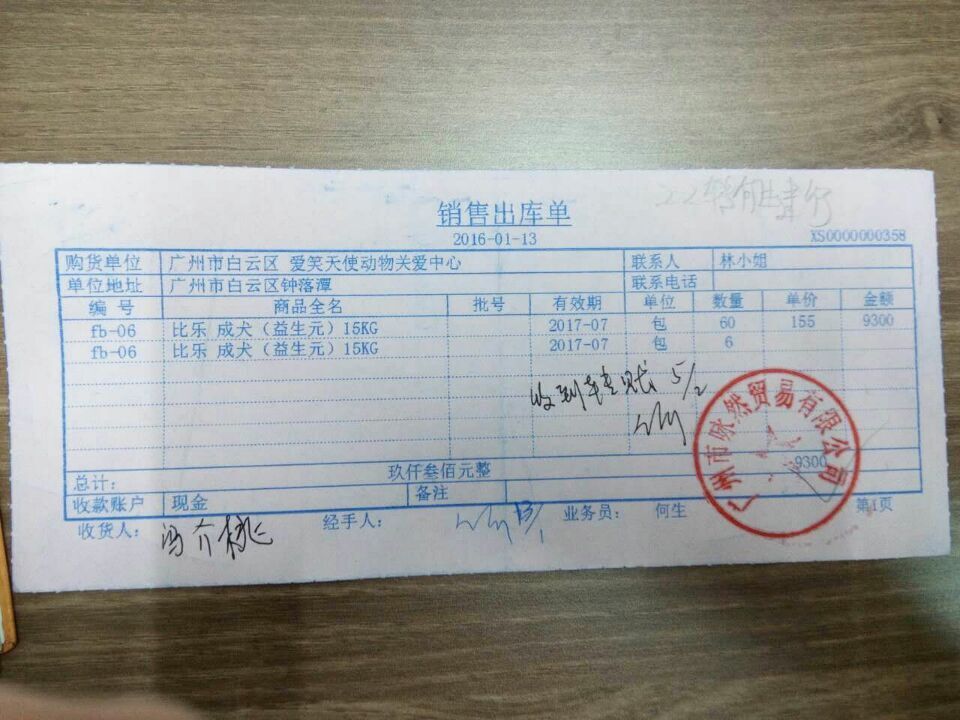 销售出库单
2016-01-13
XS0000000358
购货单位 广州市白云区 爱笑天使动物关爱中心 联系人 林小姐
单位地址 广州市白云区钟落潭 联系电话
编号 商品全名 批号 有效期 单位 数量 单价 金额
fb-06 比乐 成犬（益生元）15KG 2017-07 包 60 155 9300
fb-06 比乐 成犬（益生元）15KG 2017-07 包 6
收到 5/2
广州市咏然贸易有限公司
9300
总计： 玖仟叁佰元整
收款账户 现金 备注
收货人： 冯介桃 经手人： 业务员： 何生 第1页